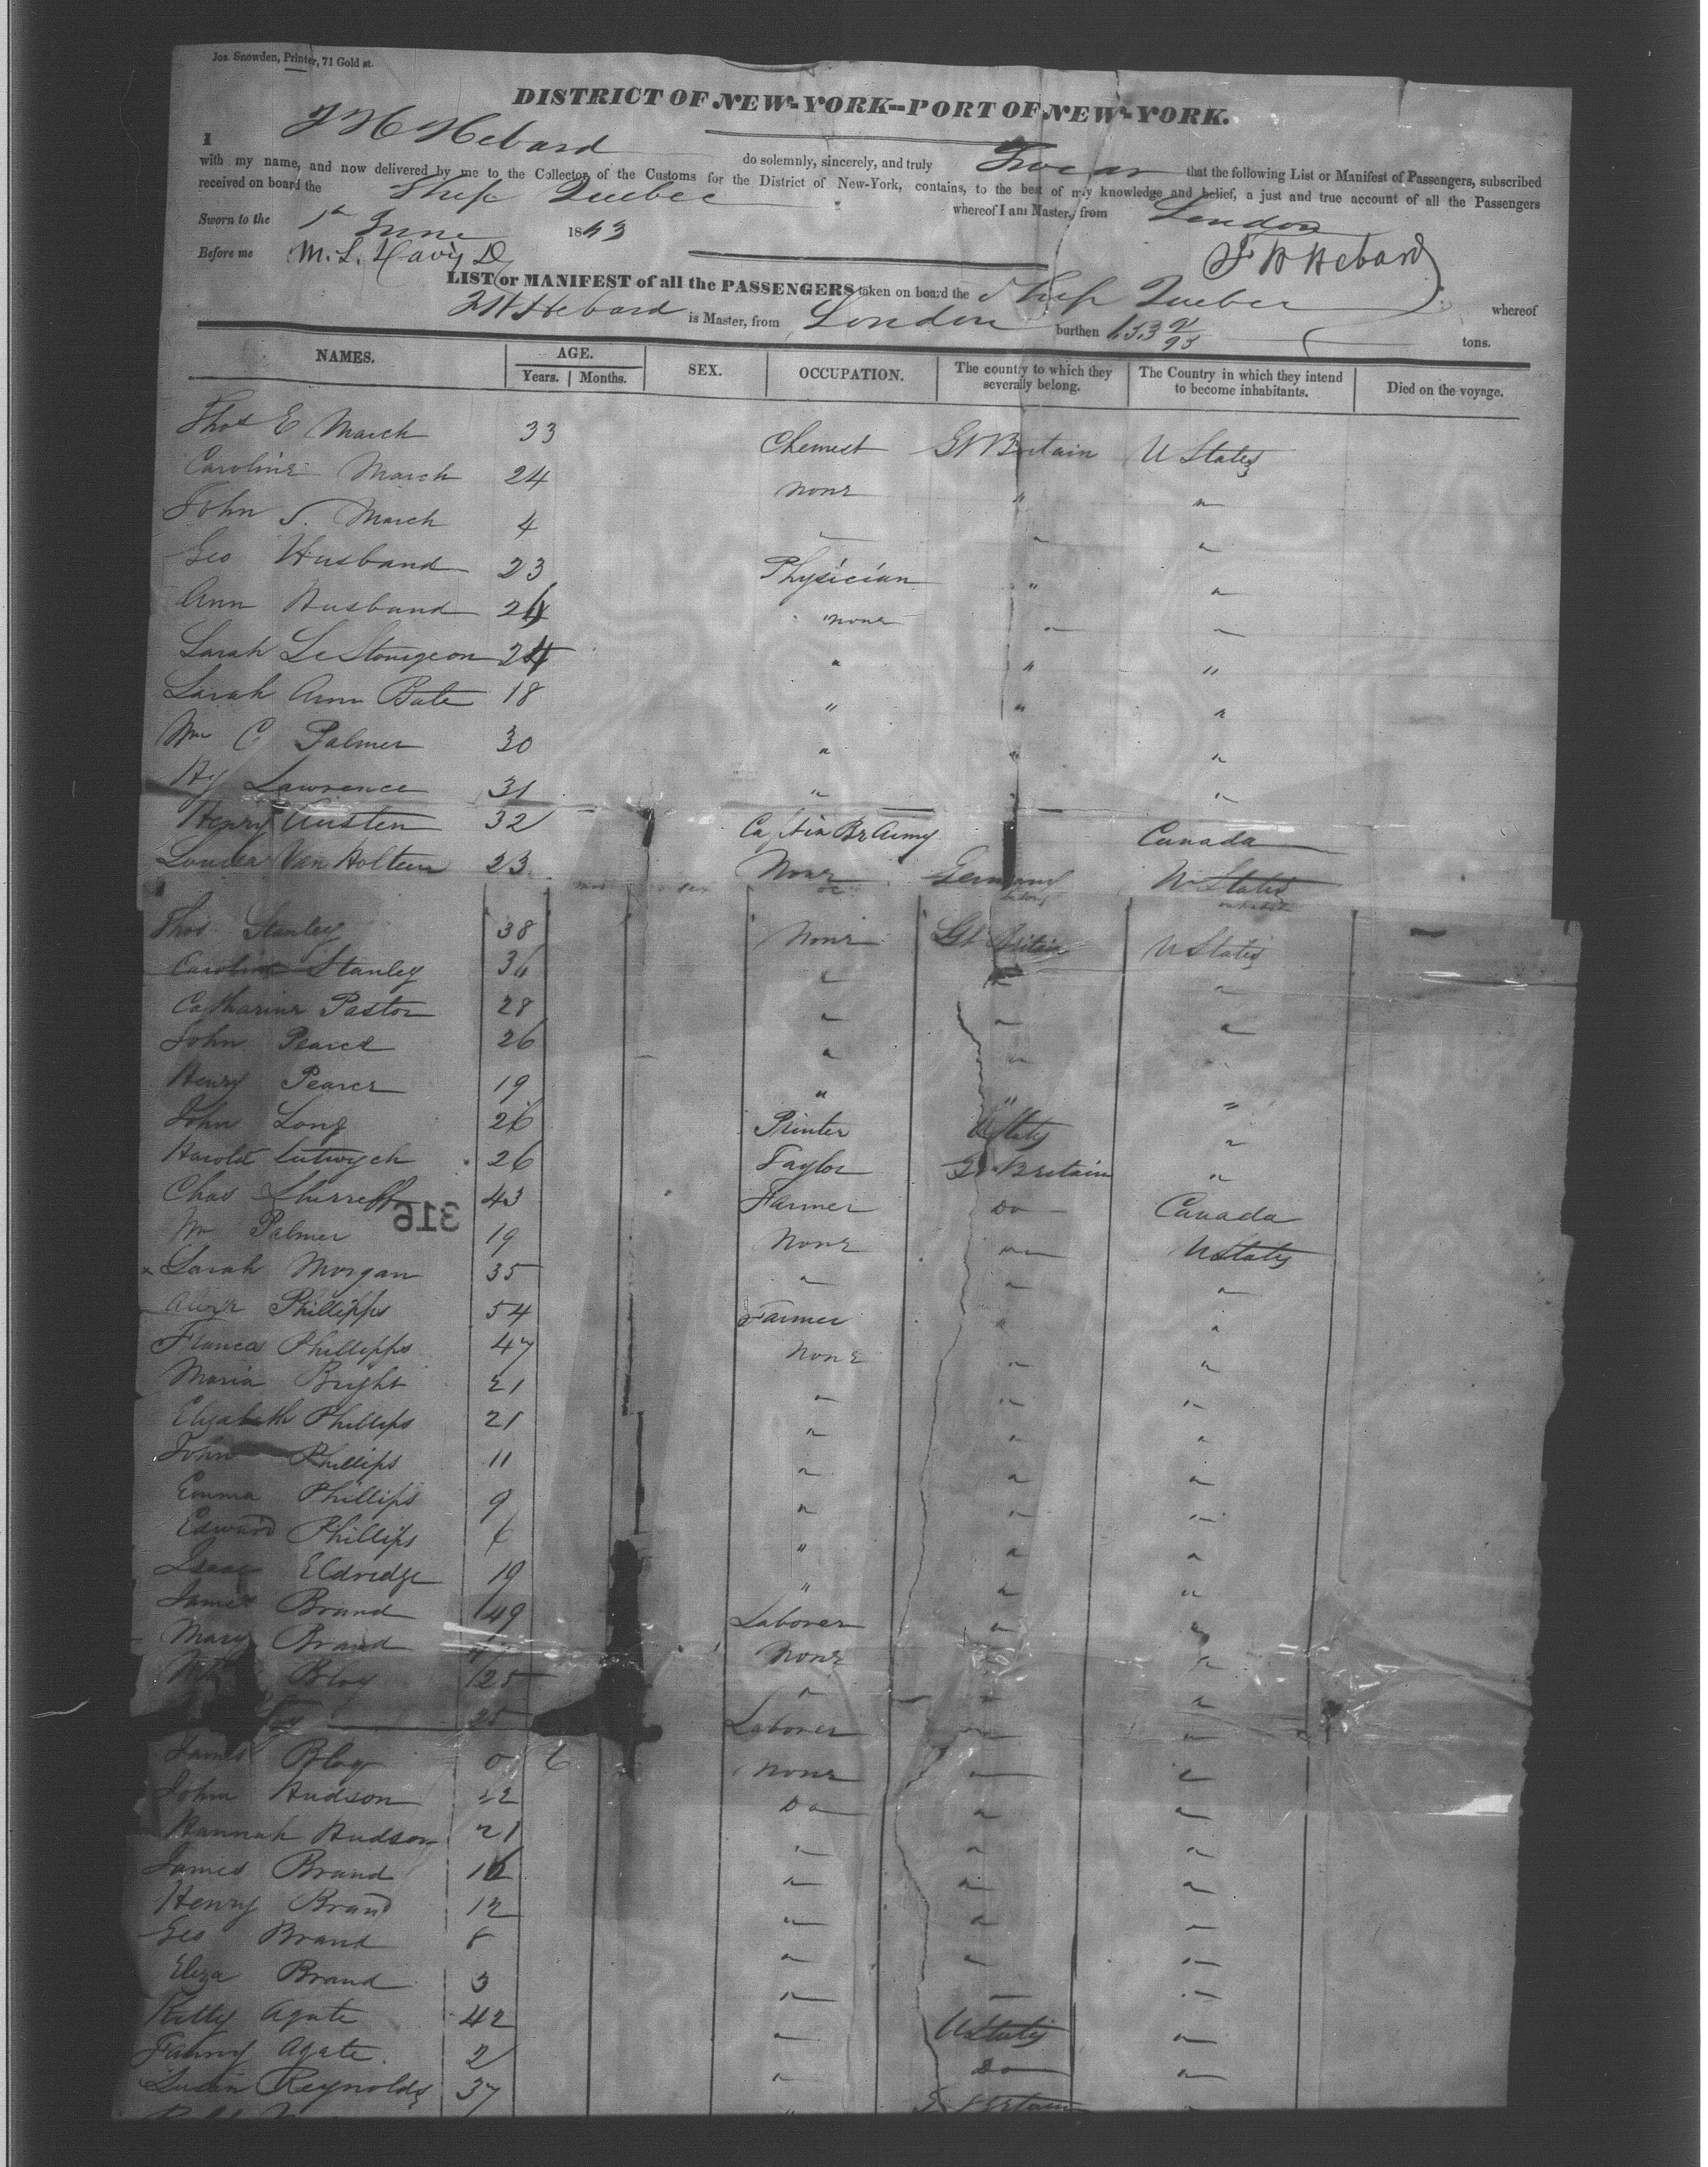 Jos. Snowden, Printer, 71 Gold st.
DISTRICT OF NEW-YORK--PORT OF NEW-YORK.
I F H Hebard do solemnly, sincerely, and truly Swear that the following List or Manifest of Passengers, subscribed
with my name, and now delivered by me to the Collector of the Customs for the District of New-York, contains, to the best of my knowledge and belief, a just and true account of all the Passengers
received on board the Ship Quebec whereof I am Master, from London
Sworn to the 1st June 1843
Before me M. L. Davis F H Hebard
LIST or MANIFEST of all the PASSENGERS taken on board the Ship Quebec whereof
F H Hebard is Master, from London burthen tons.
NAMES. AGE. SEX. OCCUPATION. The country to which they severally belong. The Country in which they intend to become inhabitants. Died on the voyage.
Years. Months.
Thos E March 33 Chemest Gt Britain U States
Caroline March 24 none " "
John S. March 4 " " "
Geo Husband 23 Physician " "
Ann Husband 24 none " "
Sarah LeStourgeon 24 " " "
Sarah Ann Bate 18 " " "
Wm C Palmer 30 " " "
Hy Lawrence 31 " "
Henry Austen 32 Capt in Br Army Canada
Louisa Van Holten 23 None Germany U States
Thos Stanley 38 None Gt Britain U States
Caroline Stanley 36 " " "
Catharine Pastor 28 " " "
John Pearce 26 " "
Henry Pearce 19 " " "
John Long 26 Printer U States "
Harold Lutwych 26 Taylor Gt Britain "
Chas Shirreff 43 Farmer Do Canada
316
Wm Palmer 19 None " U States
Sarah Morgan 35 " " "
Alexr Phillipps 54 Farmer " "
Frances Phillipps 47 None " "
Maria Bright 21 " " "
Elizabeth Phillips 21 " " "
John Phillips 11 " " "
Emma Phillips 9 " " "
Edward Phillips 6 " " "
Isaac Eldredge 19 " " "
James Brand 49 Laborer " "
Mary Brand None " "
Bloy 25 " " "
25 Laborer " "
James Bloy 0 6 None " "
John Hudson 22 Do " "
Hannah Hudson 21 " " "
James Brand 16 " " "
Henry Brand 12 " " "
Geo Brand 8 " " "
Eliza Brand 3 " "
Kitty Agate 42 " U States "
Fanny Agate 2 " Do "
Susan Reynolds 37 " Gt Britain